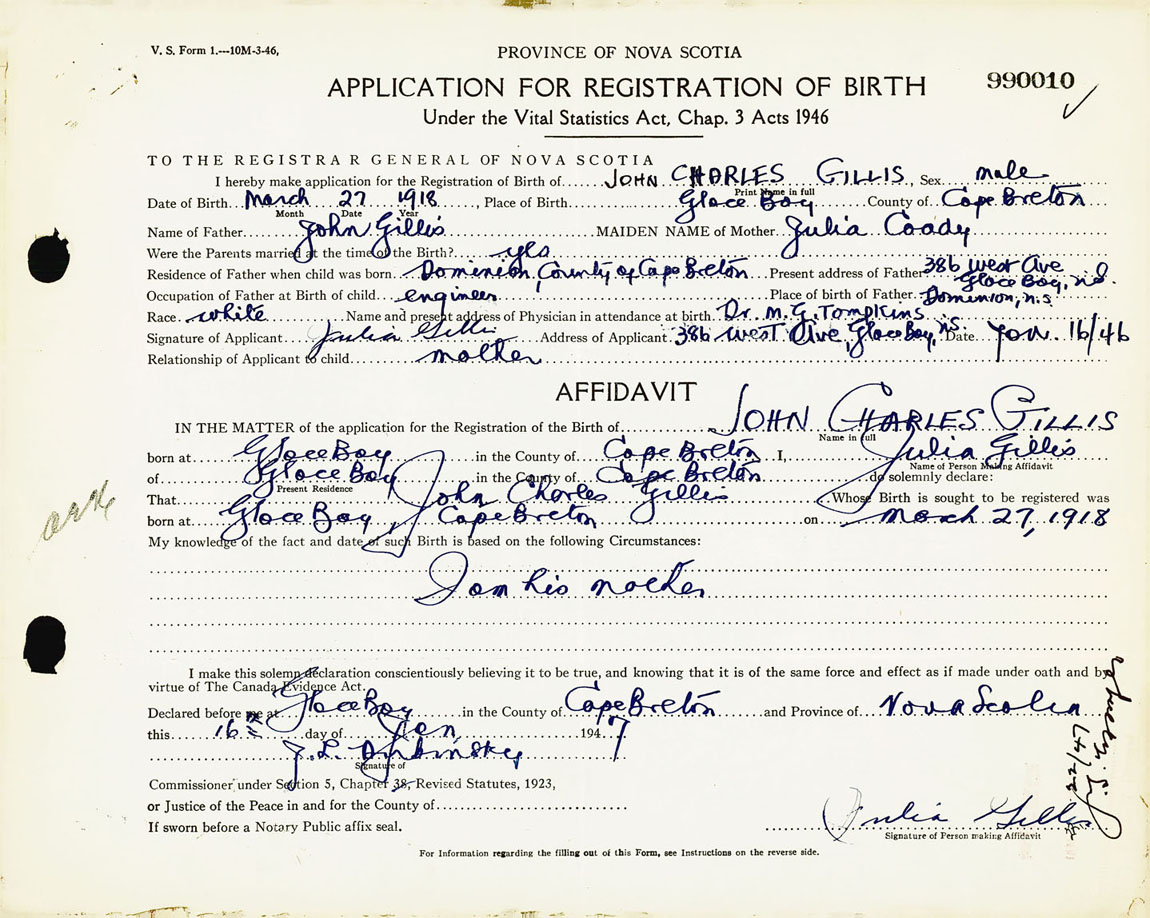 V. S. Form 1.---10M-3-46,
PROVINCE OF NOVA SCOTIA
APPLICATION FOR REGISTRATION OF BIRTH
990010
Under the Vital Statistics Act, Chap. 3 Acts 1946
TO THE REGISTRA R GENERAL OF NOVA SCOTIA
I hereby make application for the Registration of Birth of JOHN CHARLES GILLIS, Sex male
Print Name in full
Date of Birth March 27 1918, Place of Birth Glace Bay County of Cape Breton
Month Date Year
Name of Father John Gillis MAIDEN NAME of Mother Julia Coady
Were the Parents married at the time of the Birth? yes
Residence of Father when child was born Dominion, County of Cape Breton Present address of Father 386 West Ave Glace Bay, n.s.
Occupation of Father at Birth of child engineer Place of birth of Father Dominion, n.s.
Race white Name and present address of Physician in attendance at birth Dr. M. G. Tompkins
Signature of Applicant Julia Gillis Address of Applicant 386 West Ave, Glace Bay, n.s. Date Jan. 16/46
Relationship of Applicant to child mother
AFFIDAVIT
IN THE MATTER of the application for the Registration of the Birth of JOHN CHARLES GILLIS
Name in full
born at Glace Bay in the County of Cape Breton I, Julia Gillis
Name of Person Making Affidavit
of Glace Bay in the County of Cape Breton do solemnly declare:
Present Residence
That John Charles Gillis Whose Birth is sought to be registered was
born at Glace Bay, Cape Breton on March 27, 1918
My knowledge of the fact and date of such Birth is based on the following Circumstances:
I am his mother
I make this solemn declaration conscientiously believing it to be true, and knowing that it is of the same force and effect as if made under oath and by
virtue of The Canada Evidence Act.
Declared before me at Glace Bay in the County of Cape Breton and Province of Nova Scotia
this 16th day of Jan 1947
Signature of
Commissioner under Section 5, Chapter 38, Revised Statutes, 1923,
or Justice of the Peace in and for the County of
If sworn before a Notary Public affix seal.
Julia Gillis
Signature of Person making Affidavit
For Information regarding the filling out of this Form, see Instructions on the reverse side.